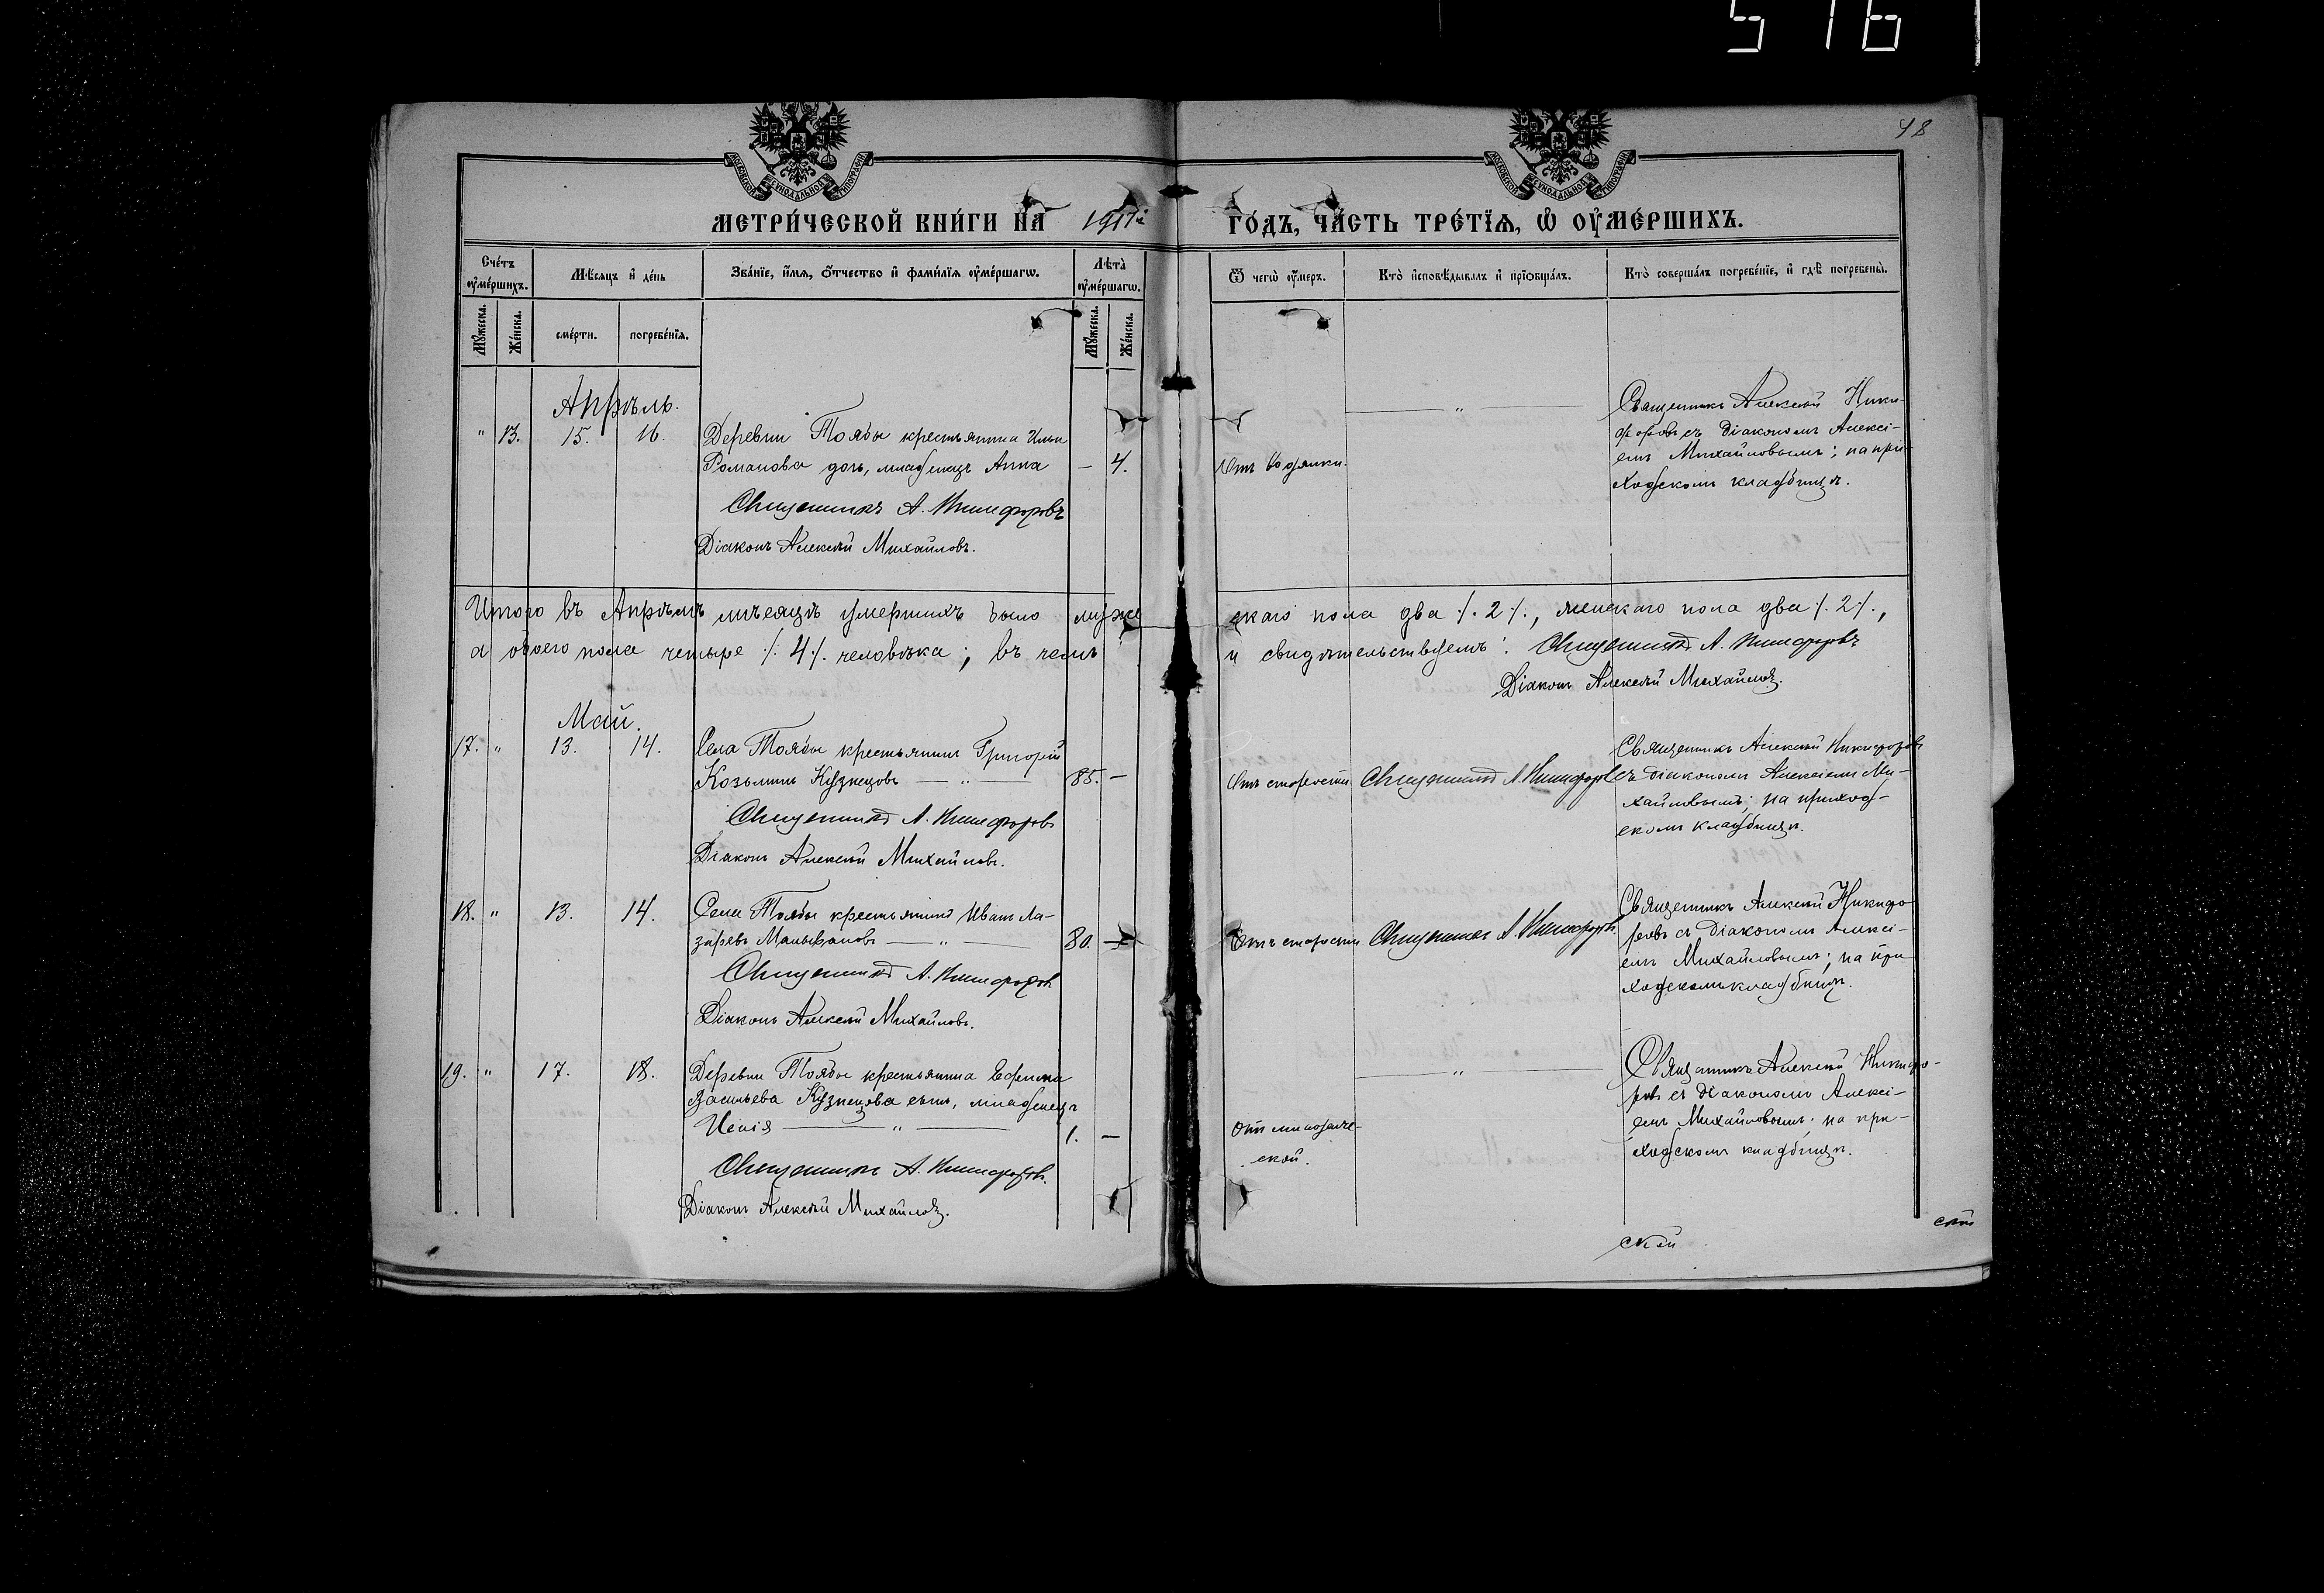 516
48
МОСКОВСКОЙ СѴНОДАЛЬНОЙ ТИПОГРАФІИ
МОСКОВСКОЙ СѴНОДАЛЬНОЙ ТИПОГРАФІИ
МЕТРИ́ЧЕСКОЙ КНИ́ГИ НА 1911й ГО́ДЪ, ЧА́СТЬ ТРЕ́ТЇѦ, Ѡ҆ ОУ҆МЕ́РШИХЪ.
Сче́тъ оу҆ме́ршихъ.
Мѣ́сяцъ и҆ де́нь
Зва́нїе, и҆́мѧ, ѻ҆́тчество и҆ фами́лїѧ оу҆ме́ршагѡ.
Лѣ́та оу҆ме́ршагѡ.
Ѿ чегѡ̀ оу҆́меръ.
Кто̀ и҆сповѣ́дывалъ и҆ прїѡбща́лъ.
Кто̀ соверша́лъ погребе́нїе, и҆ гдѣ̀ погребены̀.
Мꙋ́жеска.
Же́нска.
сме́рти.
погребе́нїѧ.
Мꙋ́жеска.
Же́нска.
Апрѣль.
" 13. 15. 16.
Деревни Тоябы крестьянина Ильи
Романова дочь, младенецъ Анна — 4.
Священникъ А. Никифоровъ
Діаконъ Алексѣй Михайловъ.
Отъ водянки.
— " —
Священникъ Алексѣй Ники-
форовъ съ діакономъ Алексі-
емъ Михайловымъ; на при-
ходскомъ кладбищѣ.
Итого въ Апрѣлѣ мѣсяцѣ умершихъ было муже
скаго пола два ·/. 2 ·/., женскаго пола два ·/. 2 ·/.,
а обоего пола четыре ·/. 4 ·/. человѣка; въ чемъ
и свидѣтельствуемъ: Священникъ А. Никифоровъ
Діаконъ Алексѣй Михайловъ.
Май.
17. " 13. 14.
Села Тоябы крестьянинъ Григорій
Козьминъ Кузнецовъ — " — 85. —
Священникъ А. Никифоровъ
Діаконъ Алексѣй Михайловъ.
Отъ старости
Священникъ А. Никифоровъ
Священникъ Алексѣй Никифоровъ
съ діакономъ Алексіемъ Ми-
хайловымъ; на приход-
скомъ кладбищѣ.
18. " 13. 14.
Села Тоябы крестьянинъ Иванъ Ла-
заревъ — " — 80. —
Священникъ А. Никифоровъ
Діаконъ Алексѣй Михайловъ.
Отъ старости
Священникъ А. Никифоровъ.
Священникъ Алексѣй Никифо
ровъ съ діакономъ Алексі-
емъ Михайловымъ; на при
ходскомъ кладбищѣ.
19. " 17. 18.
Деревни Тоябы крестьянина Ефима
Васильева Кузнецова сынъ, младенецъ
— " — 1. —
Священникъ А. Никифоровъ.
Діаконъ Алексѣй Михайловъ.
Отъ младенче-
ской.
— " —
Священникъ Алексѣй Никифо-
ровъ съ діакономъ Алексі-
емъ Михайловымъ; на при-
ходскомъ кладбищѣ.